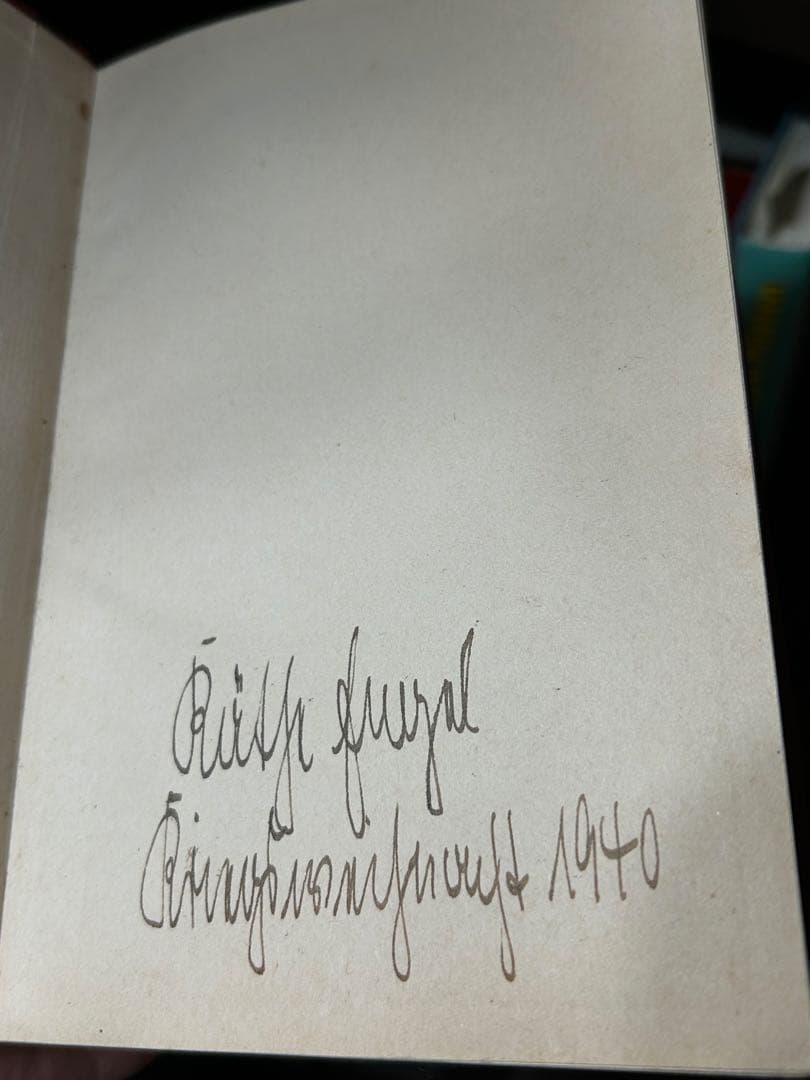 Käthe
Kriegsweihnacht 1940